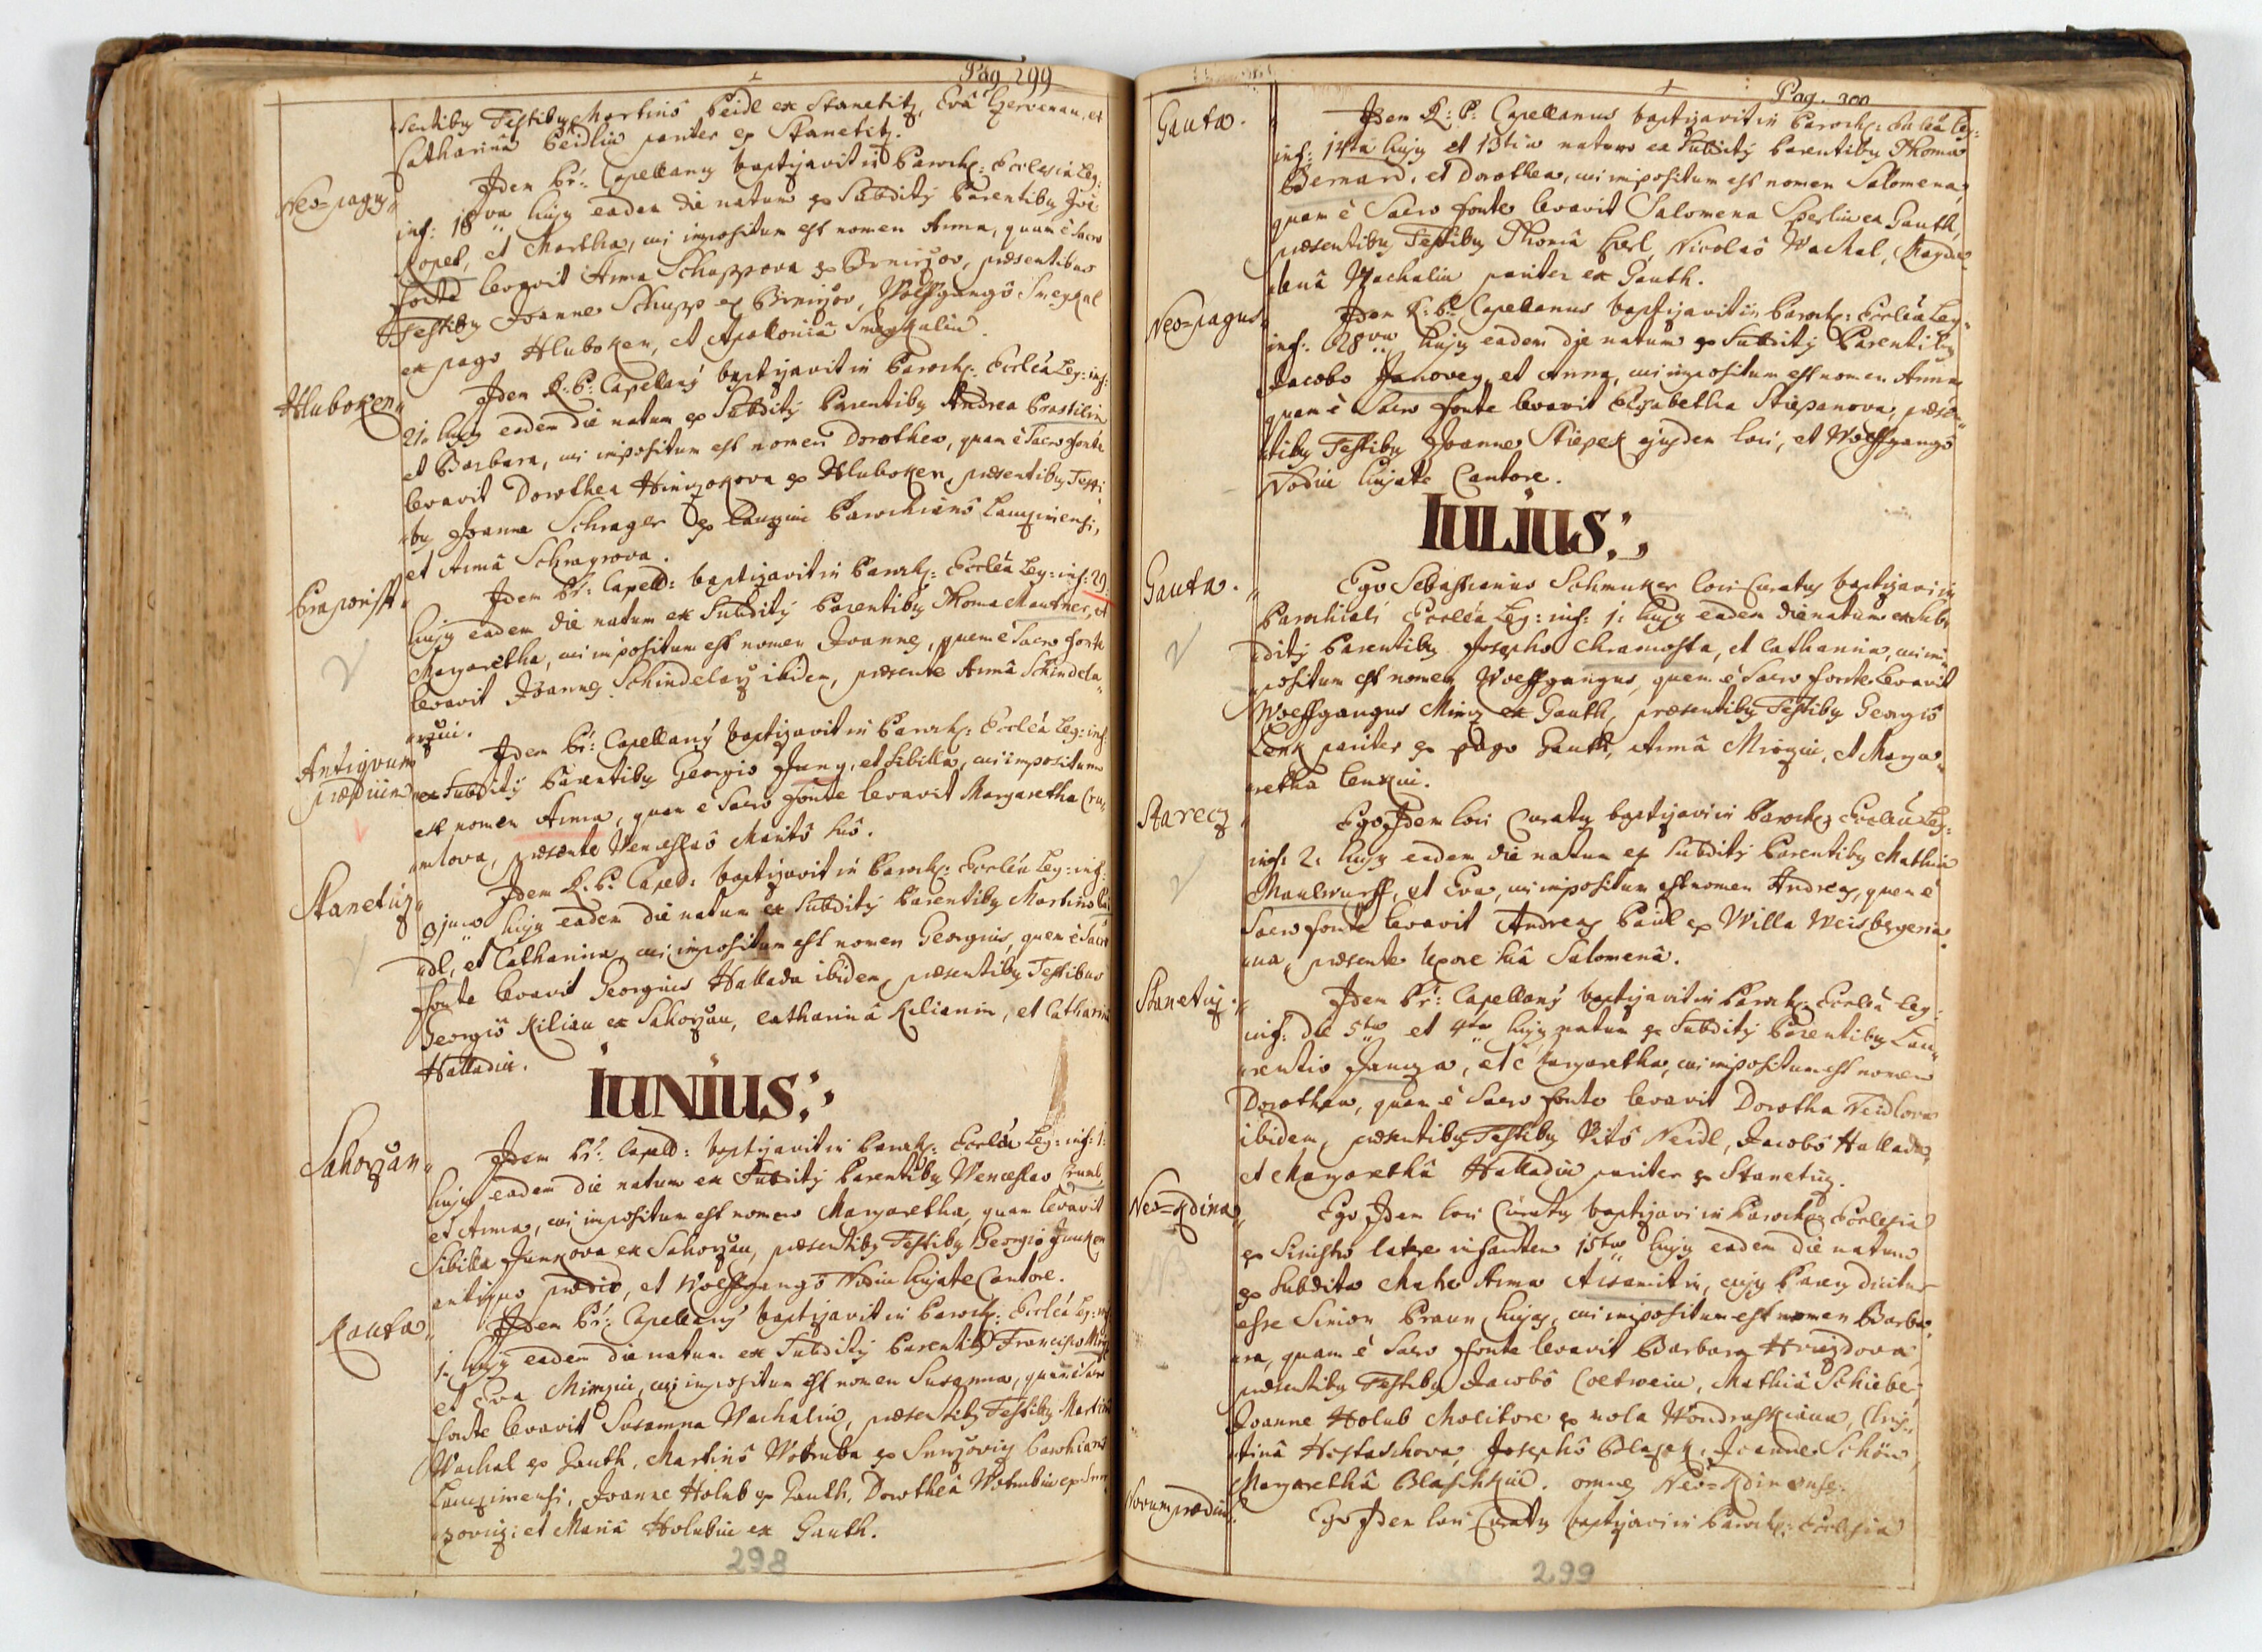 Pag. 299
sentiby Testiby Martinô Peidl ex Stanetitz, Evâ Hervenau, et
Catharinâ Peidlin pariter ex Stanetitz.
Neo=pagus
Idem Pr: Capellany baptizavit in Paroch: Ecclesia Leg:
inf: 18va hujy eadem die natum ex Subditÿ Parentiby Joê
Kopet, et Martha, cui impositum est nomen Anna, quam è Sacro
fonte levavit Anna Schuppova ex Brnirzov, præsentibus
Testiby Joanne Schupp ex Brnirzov, Wolfgangô Smeykal
ex pago Hluboken, et Apolloniâ Smeykalin.
Hluboken
Idem R: P: Capellanÿ baptizavit in Paroch: Ecclêa Leg: inf:
21. hujy eadem die natum ex Subditÿ Parentiby Andrea Prastilin
et Barbara, cui impositum est nomen Dorothea, quam è Sacro fonte
levavit Dorothea Hinczokova ex Hluboken, præsentiby Testi
by Joanne Schrager ex Lauzim Parochianô Lauzimensi,
et Annâ Schragrova.
Idem Pr: Capell: baptizavit in Paroch: Ecclêa Leg: inf: 29:
hujy eadem die natum ex Subditÿ Parentiby Thoma Mautner, et
Margaretha, cui impositum est nomen Joannes, quem è Sacro fonte
levavit Joannes Schindelarz ibidem, præsente Annâ Schindela
rzin.
Antiquum
prædium
Idem Pr: Capellanÿ baptizavit in Paroch: Ecclêa Leg: inf:
ex Subditÿ Parentiby Georgio Jung, et Sibilla, cui impositum
est nomen Anna, quam è Sacro fonte levavit Margaretha Cru
mlova, præsente Venceslaô Maritô suô.
Stanetitz
Idem R. P. Capell: baptizavit in Paroch: Ecclêa Leg: inf:
hujy eadem die natum ex Subditÿ Parentiby Martino Pei
dl, et Catharina, cui impositum est nomen Georgius, quem è Sacro
fonte levavit Georgius Hallada ibidem, præsentiby Testibus
Georgiô Kilian ex Sahorzan, Catharinâ Kilianin, et Catharinâ
Halladin.
IUNIUS:
Sahorzan
Idem Pr: Capell: baptizavit in Paroch: Ecclêa Leg: inf: 1:
hujy eadem die natum ex Subditÿ Parentiby Venceslao Cruml,
et Anna, cui impositum est nomen Margaretha, quam levavit
Sibilla Junkova ex Sahorzan, præsentiby Testiby Georgiô Junken
antiquo prædio, et Wolffgangô Nodin hujate Cantore.
Kauta
Idem Pr: Capellanÿ baptizavit in Paroch: Ecclêa Leg: inf:
1. hujy eadem die natum ex Subditÿ Parentiby Francisco Mirz
et Eva Mirzin, cui impositum est nomen Susanna, quam è Sacro
fonte levavit Susanna Wachalin, præsentiby Testiby Martinô
Wachal ex Gauth, Martinô Wotruba ex Smrzoviz Parochianô
Lauzimensi, Joanne Holub ex Gauth, Dorotheâ Wotrubin ex Smr
zoviz: et Mariâ Holubin ex Gauth.
298
Pag. 300
Gauta.
Idem R: P: Capellanus baptizavit in Paroch: Ecclêa Leg:
inf: 14ta hujy et 13tia natum ex Subditÿ Parentiby Thoma
Bernard, et Dorothea, cui impositum est nomen Salomena,
quam è Sacro fonte levavit Salomena Sperlin ex Gauth,
præsentiby Testiby Thomâ Perl, Nicolaô Wachal, Magda
lenâ Wachalin pariter ex Gauth.
Neo=pagus
Idem R: P: Capellanus baptizavit in Paroch: Ecclêa Leg:
inf: 28va hujy eadem die natum ex Subditÿ Parentiby
Jacobo Janovez, et Anna, cui impositum est nomen Anna
quam è Sacro fonte levavit Elisabetha Stiepanova, præsen
tiby Testiby Joanne Stiepek ejusdem loci, et Wolffgangô
Nodin hujate Cantore.
IULIUS:
Gauta.
Ego Sebastianus Schmuker loci Curaty baptizavi in
Parochiali Ecclêa Leg: inf: 1: hujy eadem die natum ex Sub
ditÿ Parentiby Josepho Chramosta, et Catharina, cui im
positum est nomen Wolffgangus, quem è Sacro fonte levavit
Wolffgangus Mirz ex Gauth, præsentiby Testiby Georgiô
Lenk pariter ex pago Gauth, Annâ Mirzin, et Marga
retha Lenkin.
Starecz
Ego Idem loci Curaty baptizavi in Paroch: Ecclêa Leg:
inf: 2: hujy eadem die natum ex Subditÿ Parentiby Mathia
Maulwurff, et Eva, cui impositum est nomen Andreas, quem è
Sacro fonte levavit Andreas Paidl ex Willa Weisbergeria
na, præsente Uxore suâ Salomenâ.
Stanetiz.
Idem Pr: Capellanÿ baptizavit in Paroch: Ecclêa Leg:
inf: die 5ta et 4ta hujy natum ex Subditÿ Parentiby Lau
rentio Jancza, et Margaretha, cui impositum est nomen
Dorothea, quam è Sacro fonte levavit Dorotha Neidlova
ibidem, præsentiby Testiby Vitô Neidl, Jacobô Hallada,
et Margarethâ Halladin pariter ex Stanetiz.
Neo=Kdina
Ego Idem loci Curaty baptizavi in Parochz Ecclesia
ex Sinistro latere infantem 15ta hujy eadem die natum
ex Subdita Matre Anna Aksamitin, cujy Pareny dicitur
esse Simon Braun hujas, cui impositum est nomen Barba
ra, quam è Sacro fonte levavit Barbara Hviezdova,
præsentiby Testiby Jacobô Coetwein, Mathiâ Schieber,
Joanne Holub Molitore ex mola Wondraskiana, Chris
tinâ Hostaschova, Josephô Blazek, Joanne Schön,
Margarethâ Blaschkin. omnes Neo=Kdinenses.
Novum prædium
Ego Idem loci Curaty baptizavi in Paroch: Ecclesia
299